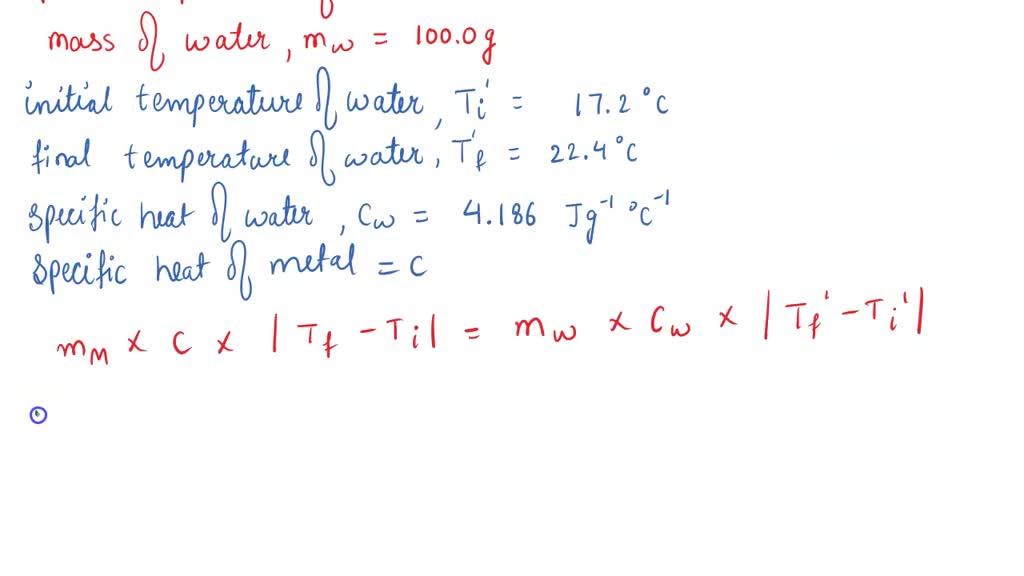 mass of water, mw = 100.0g
initial temperature of water, Ti' = 17.2 °C
final temperature of water, Tf' = 22.4 °C
specific heat of water, Cw = 4.186 Jg⁻¹ °C⁻¹
specific heat of metal = C
mM × C × |Tf - Ti| = mw × Cw × |Tf' - Ti'|